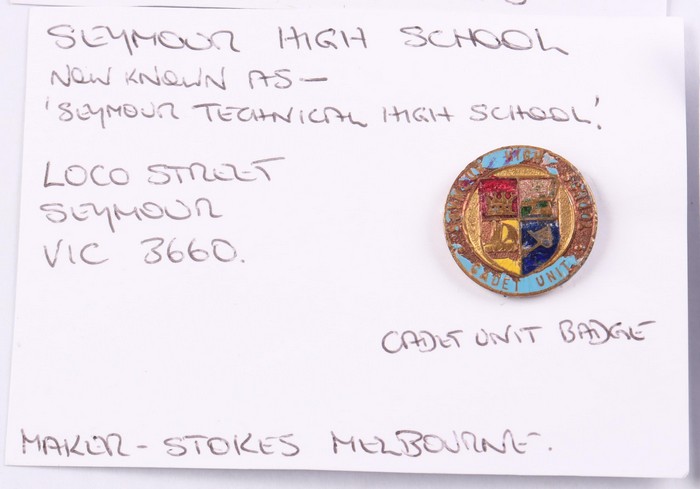 SEYMOUR HIGH SCHOOL
NOW KNOWN AS –
'SEYMOUR TECHNICAL HIGH SCHOOL'.
LOCO STREET
SEYMOUR
VIC 3660.
SEYMOUR HIGH SCHOOL
CADET UNIT
CADET UNIT BADGE
MAKER – STOKES MELBOURNE.